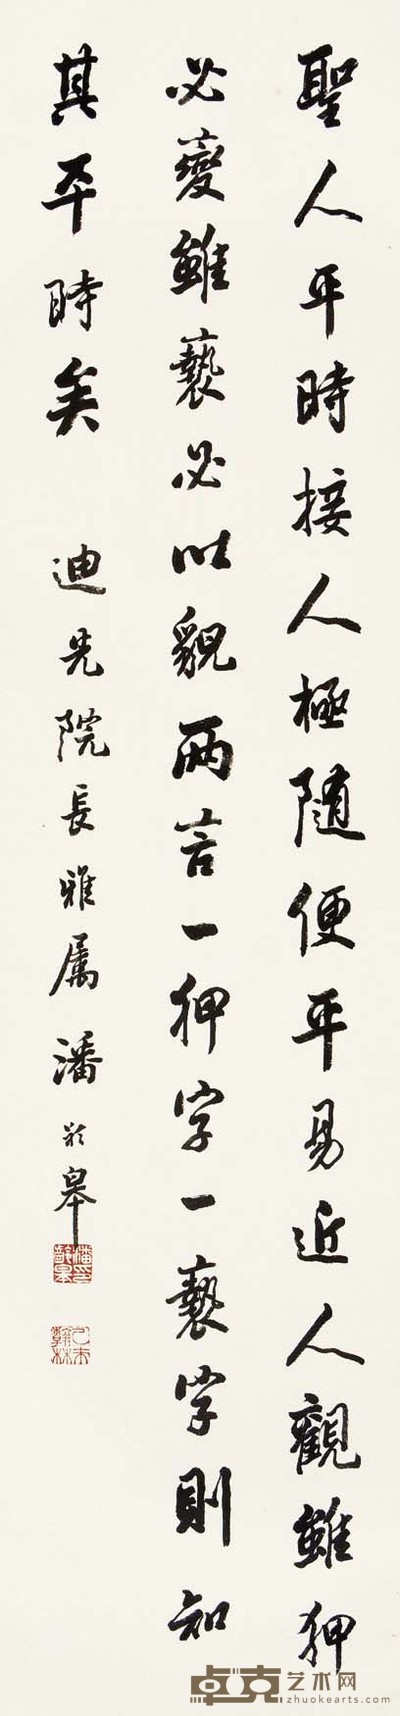 聖人平時接人極隨便平易近人觀雖狎
必變雖褻必以貌兩言一狎字一褻字則知
其平時矣
迪先院長雅屬潘齡皋
潘印齡皋
乙未翰林
卓克艺术网
zhuokearts.com